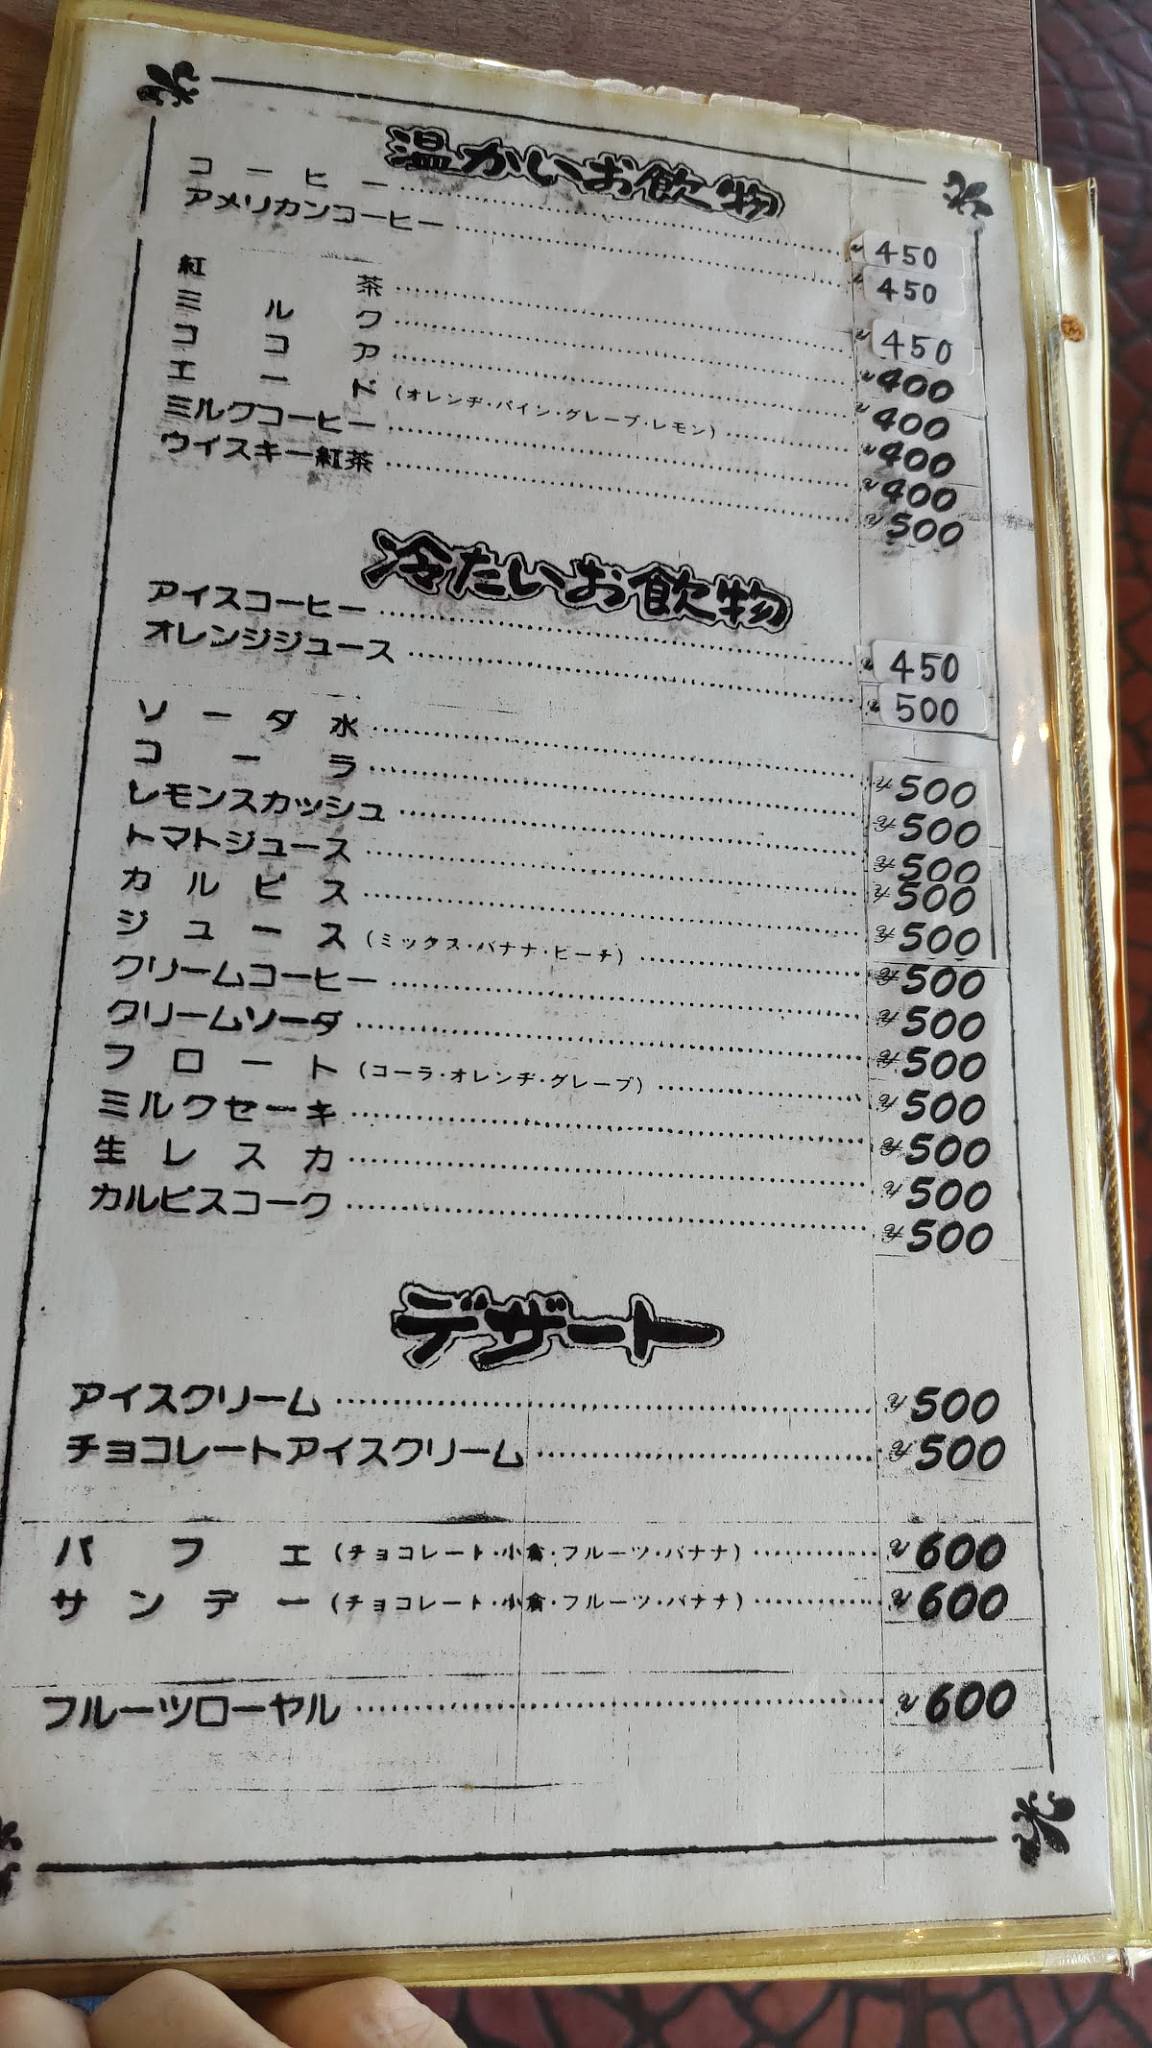 温かいお飲物
コーヒー……¥450
アメリカンコーヒー……¥450
紅茶……¥450
ミルク……¥400
ココア……¥400
エード(オレンヂ・パイン・グレープ・レモン)……¥400
ミルクコーヒー……¥400
ウイスキー紅茶……¥500
冷たいお飲物
アイスコーヒー……¥450
オレンジジュース……¥500
ソーダ水……¥500
コーラ……¥500
レモンスカッシュ……¥500
トマトジュース……¥500
カルピス……¥500
ジュース(ミックス・バナナ・ピーチ)……¥500
クリームコーヒー……¥500
クリームソーダ……¥500
フロート(コーラ・オレンヂ・グレープ)……¥500
ミルクセーキ……¥500
生レスカ……¥500
カルピスコーク……¥500
デザート
アイスクリーム……¥500
チョコレートアイスクリーム……¥500
パフェ(チョコレート・小倉・フルーツ・バナナ)……¥600
サンデー(チョコレート・小倉・フルーツ・バナナ)……¥600
フルーツローヤル……¥600